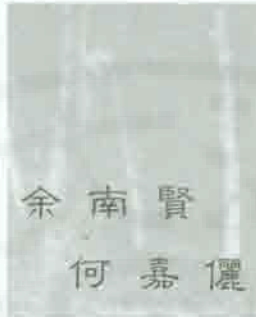 余南賢
何嘉儷